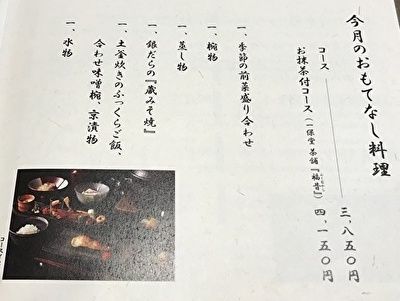 今月のおもてなし料理
コース 三、八五〇円
お抹茶付コース(一保堂茶舗『福昔』) 四、一五〇円
一、季節の前菜盛り合わせ
一、椀物
一、蒸し物
一、銀だらの『蔵みそ焼』
一、土釜炊きのふっくらご飯、
合わせ味噌椀、京漬物
一、水物